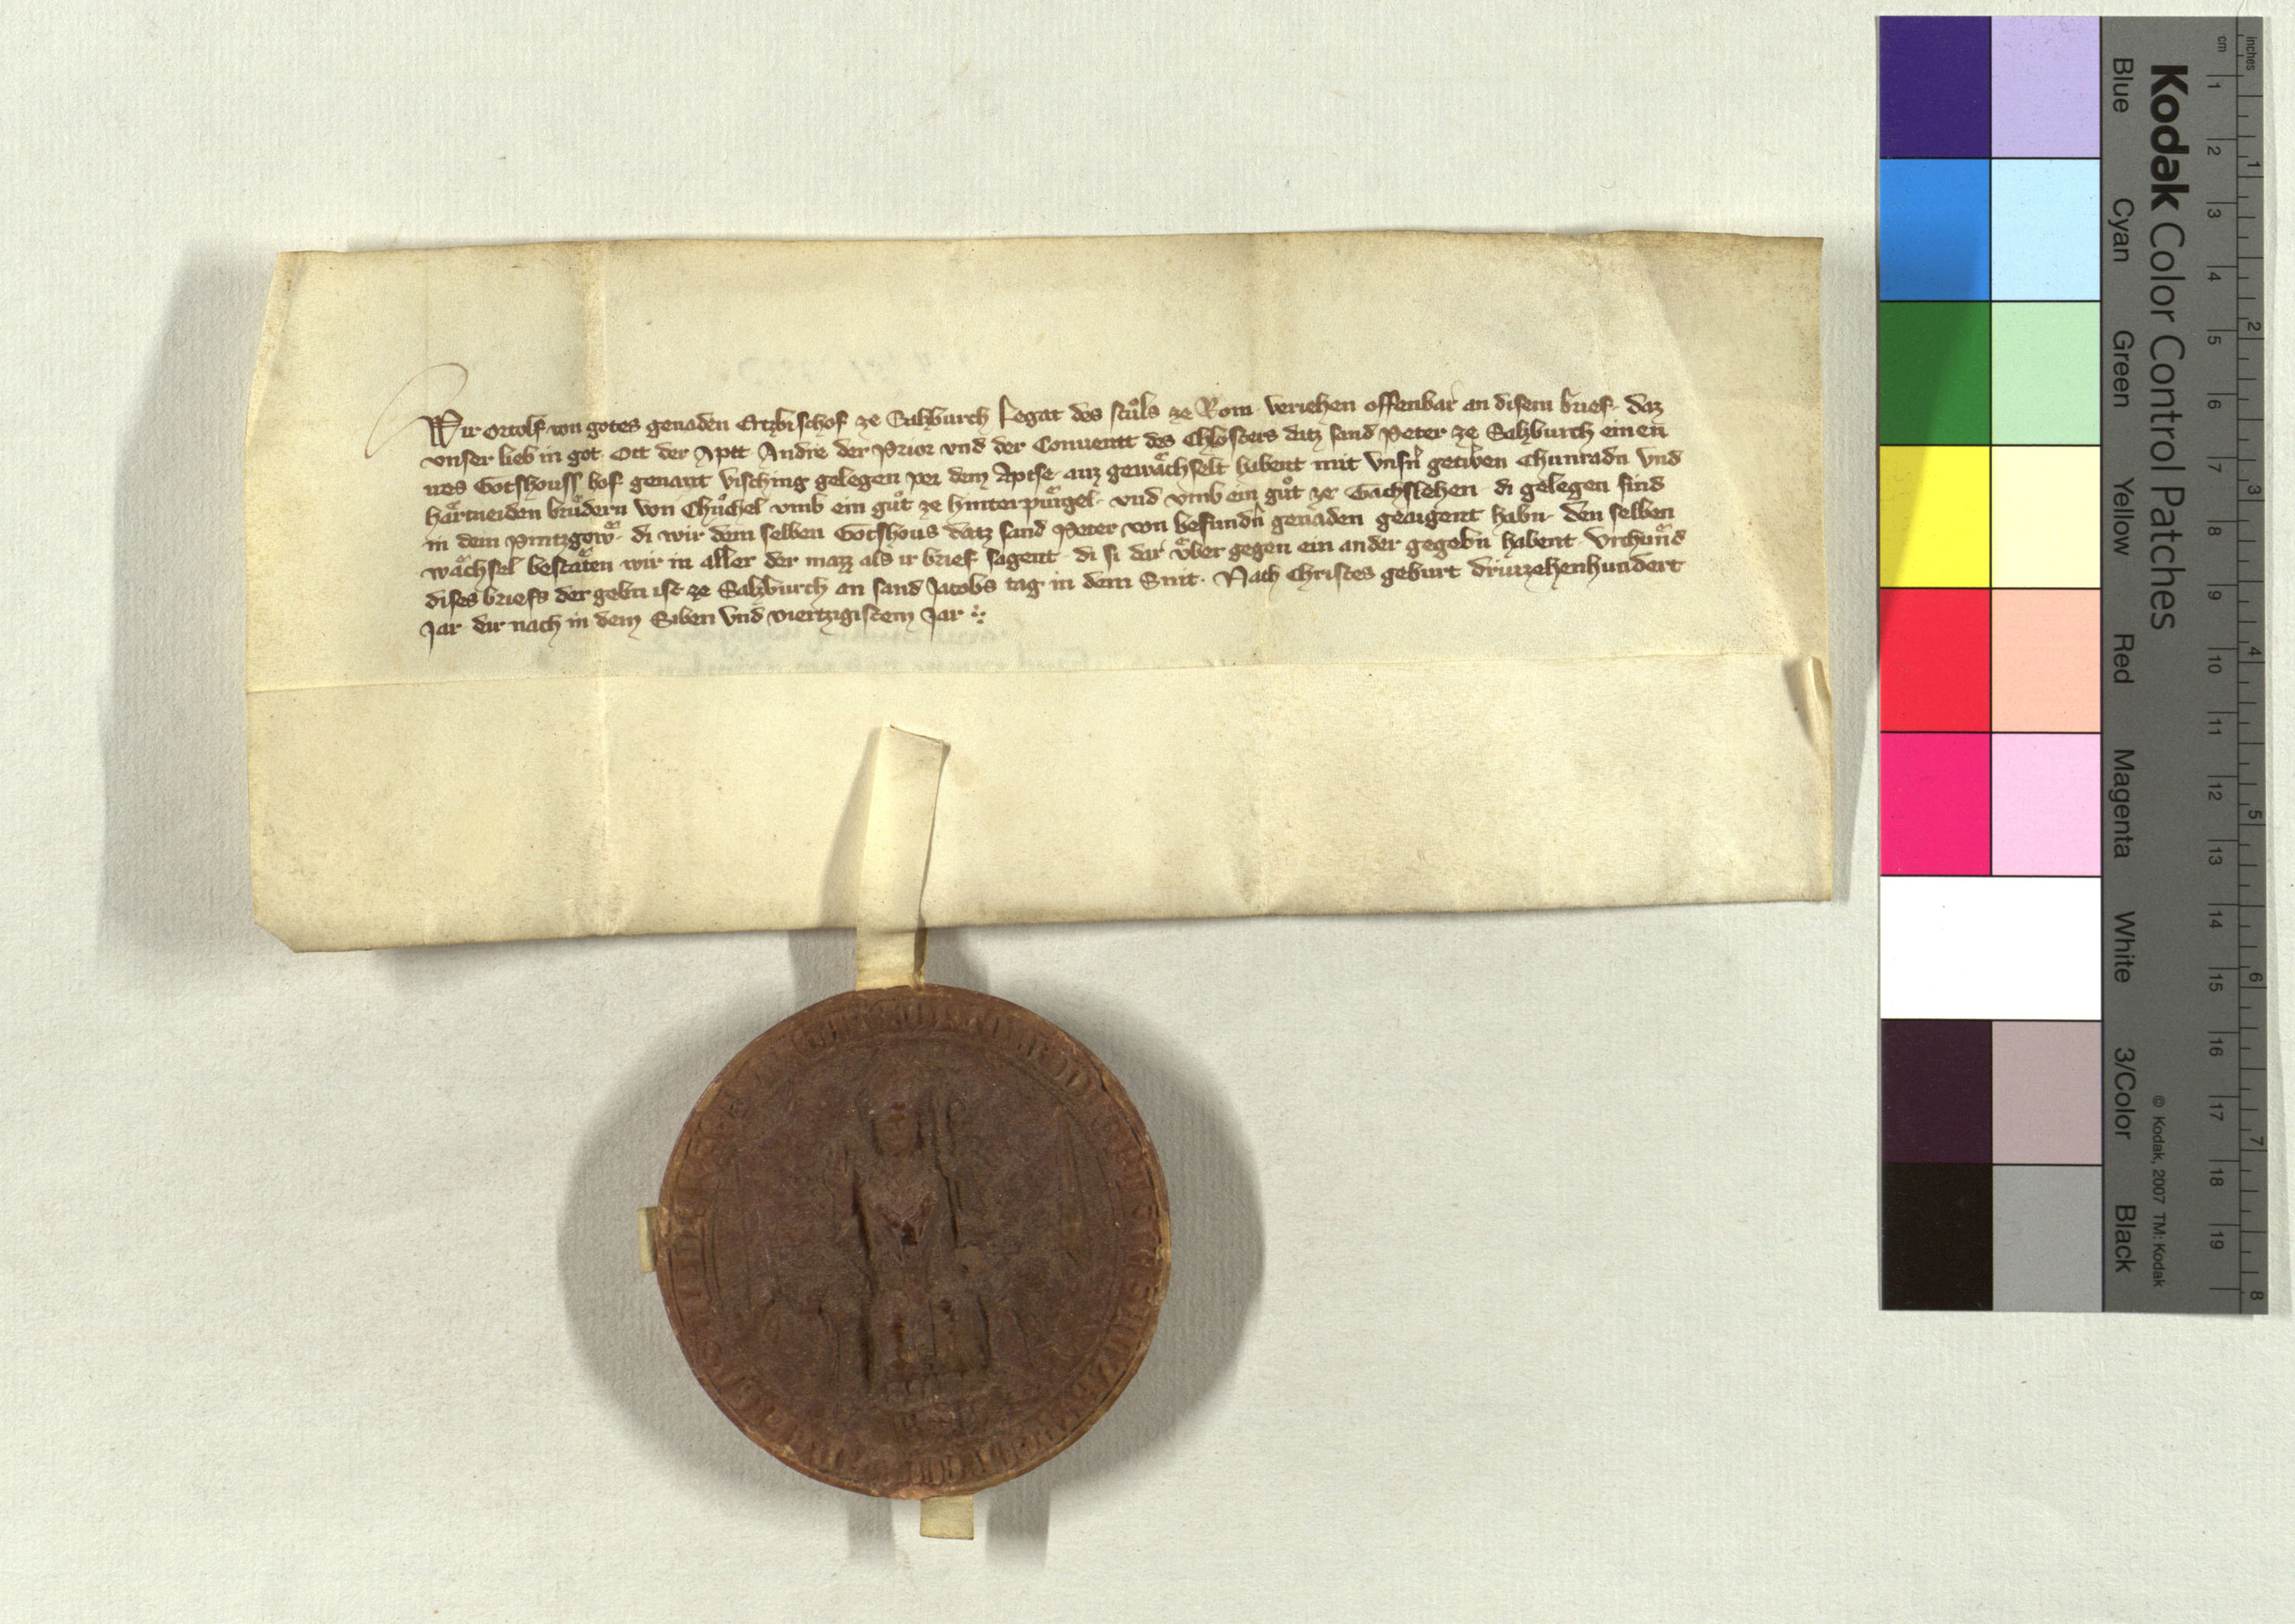 Wir Ortolf von gotes genaden Ertzbischof ze Salzburch Legat des stůls ze Rom veriehen offenbar an disem brief daz
vnser lieb in got Ott der Aptt Andre der Prior vnd der Conuentt des Chlosters datz sand Peter ze Salzburch einen
irs Gotshouss hof genant Visching gelegen pei dem Aptse auz gewaͤchselt habent mit vnsn̄ getiwen Chunradn vnd
haͤrtneiden bruͤdern von Chuͦchel vmb ein guͦt ze hinterpuͤrgel vnd vmb ein guͦt ze Gaͤchslehen di gelegen sind
in dem Pintzgoͤw di wir dem selben Gotshous datz sand Peter von besundn̄ genaden geaigent habn den selben
waͤchsel bestaͤten wir in aller der mazz als ir brief sagent di si dar vͤber gegen ein ander gegebn habent Vrchuͤnd
dises briefs der gebn ist ze Salzburch an sand Jacobs tag in dem Snit. Nach Christes geburt driuzehenhundert
Jar dar nach in dem Siben vnd viertzigistem Jar
Kodak Color Control Patches
© Kodak, 2007 TM: Kodak
Blue Cyan Green Yellow Red Magenta White 3/Color Black
cm 1 2 3 4 5 6 7 8 9 10 11 12 13 14 15 16 17 18 19
inches 1 2 3 4 5 6 7 8